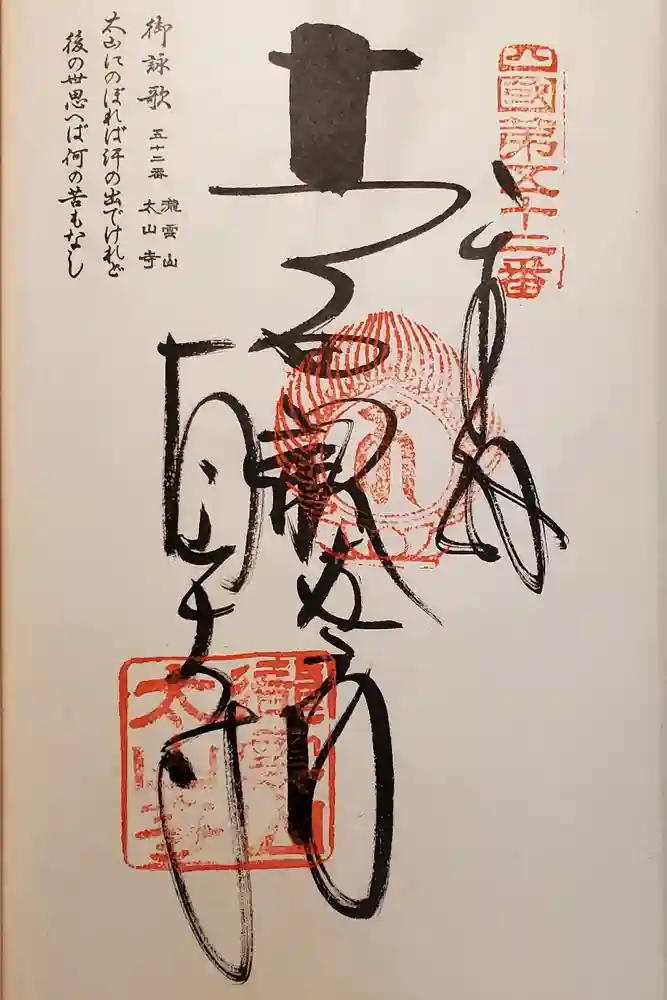 四國第五十二番
奉納
瀧雲山
太山寺
御詠歌 五十二番 瀧雲山 太山寺
太山にのぼれば汗の出でけれど
後の世思へば何の苦もなし